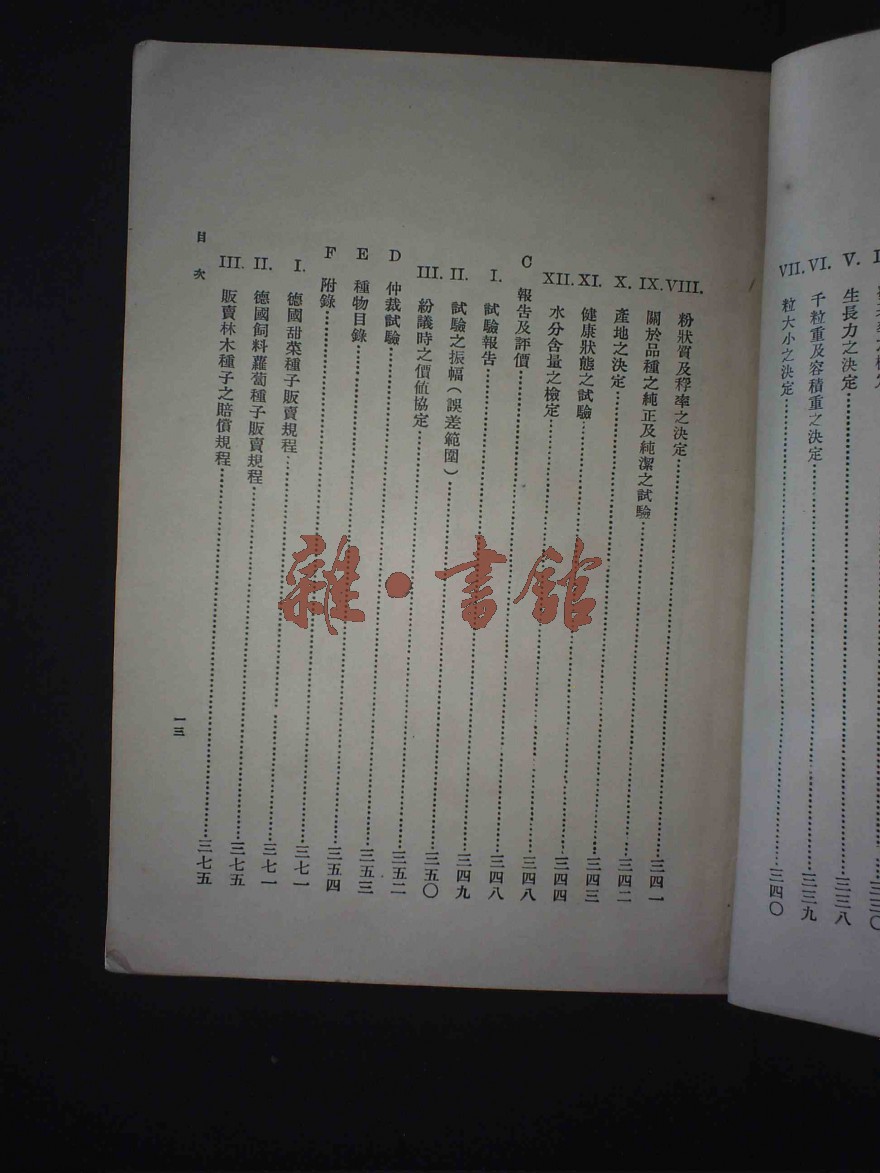 V. 生長力之決定……三三八
VI. 千粒重及容積重之決定……三三九
VII. 粒大小之決定……三四〇
VIII. 粉狀質及稃率之決定……三四一
IX. 關於品種之純正及純潔之試驗……三四二
X. 產地之決定……三四三
XI. 健康狀態之試驗……三四四
XII. 水分含量之檢定……三四八
C 報告及評價……三四八
I. 試驗報告……三四九
II. 試驗之振幅（誤差範圍）……三五〇
III. 紛議時之價値協定……三五二
D 仲裁試驗……三五三
E 種物目錄……三五四
F 附錄……三七一
I. 德國甜菜種子販賣規程……三七一
II. 德國飼料蘿蔔種子販賣規程……三七五
III. 販賣林木種子之賠償規程……三七五
目次
一三
雜·書館